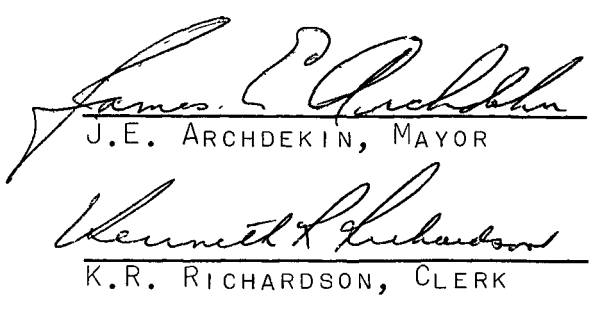 James E Archdekin
J.E. ARCHDEKIN, MAYOR
Kenneth R Richardson
K.R. RICHARDSON, CLERK